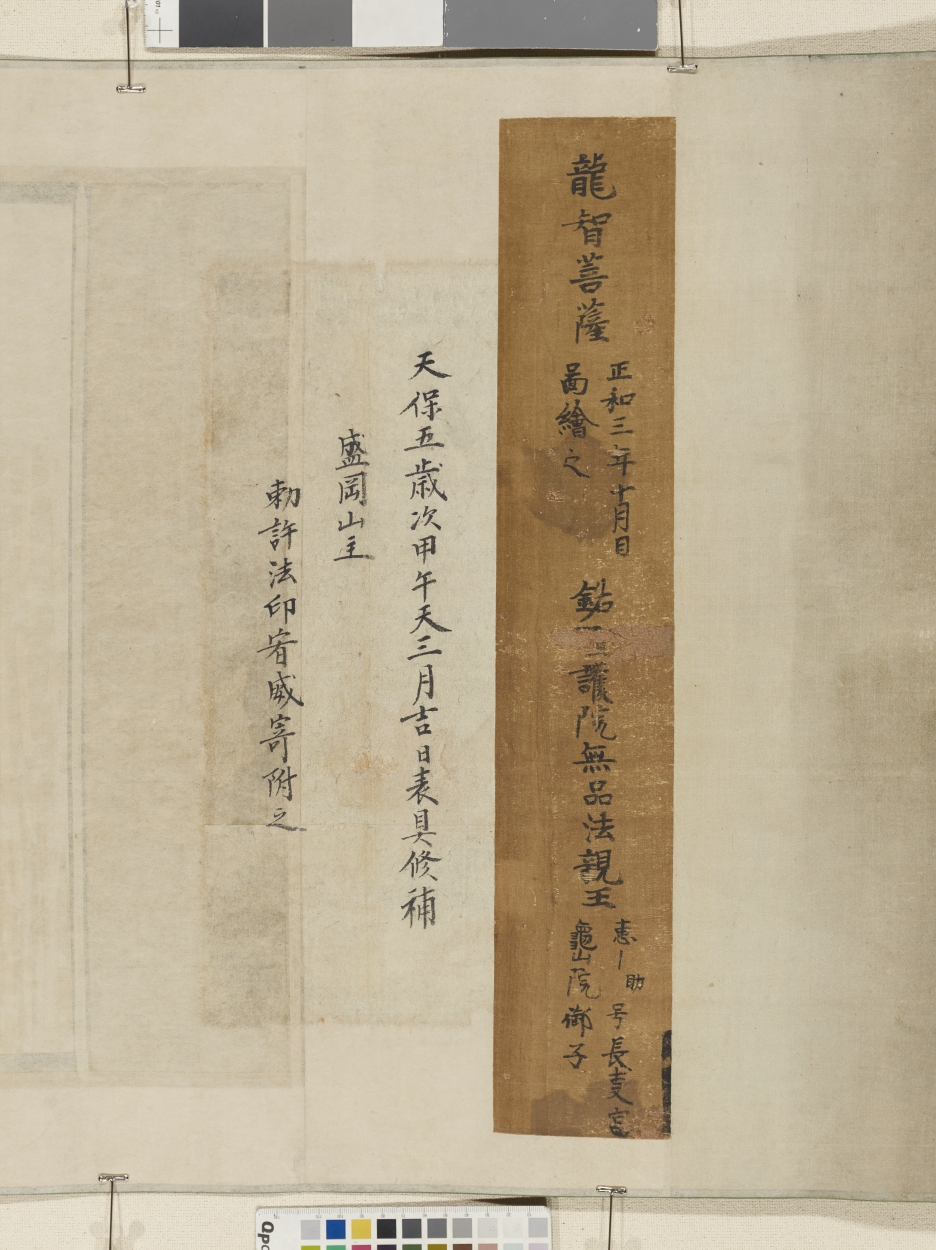 龍智菩薩
正和三年十月日
啚繪之
護院無品法親王
恵 助
号長
龜山院御子
天保五歳次甲午天三月吉日表具修補
盛岡山主
勅許法印宥威寄附之